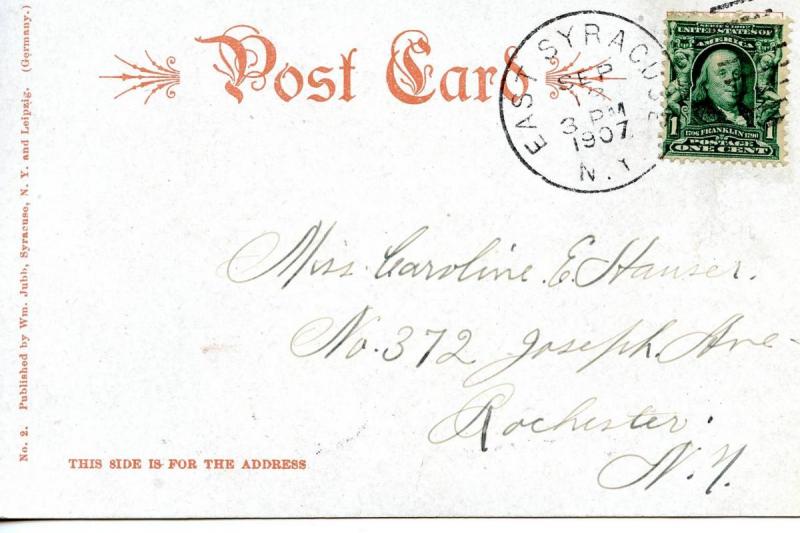 Post Card
EAST SYRACUSE
SEP
3 PM
1907
N.Y.
SERIES 1902
UNITED STATES OF
AMERICA
1706 FRANKLIN 1790
1 POSTAGE 1
ONE CENT
Miss. Caroline. E. Hauser.
No. 372 Joseph. Ave-
Rochester.
N.Y.
THIS SIDE IS FOR THE ADDRESS
No. 2. Published by Wm. Jubb, Syracuse, N. Y. and Leipzig. (Germany.)